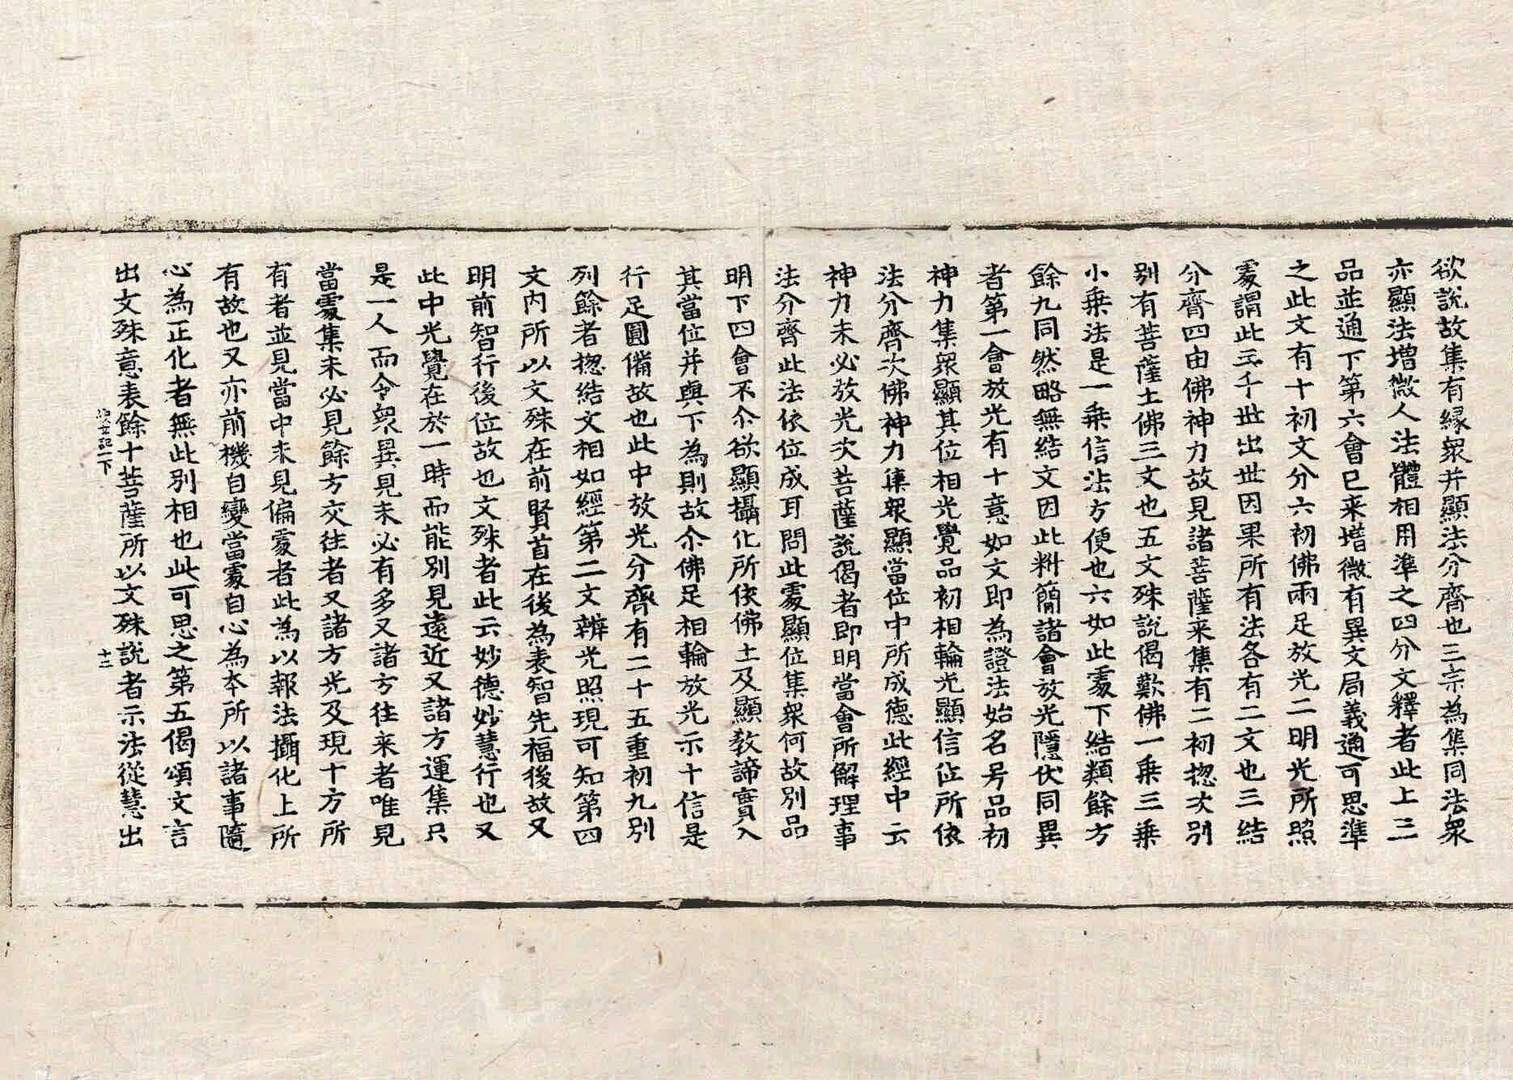 欲說故集有縁衆并顯法分齊也三宗為集同法衆
亦顯法增微人法體相用準之四分文釋者此上二
品並通下第六會已来增微有異文局義通可思準
之此文有十初文分六初佛兩足放光二明光所照
處謂此三千世出世因果所有法各有二文也三結
分齊四由佛神力故見諸菩薩来集有二初揔次別
别有菩薩土佛三文也五文殊說偈歎佛一乗三乗
小乗法是一乗信法方便也六如此處下結類餘方
餘九同然略無結文因此料簡諸會放光隱伏同異
者第一會放光有十意如文即為證法始名号品初
神力集衆顯其位相光覺品初相輪光顯信位所依
法分齊次佛神力集衆顯當位中所成德此經中云
神力未必放光次菩薩說偈者即明當會所解理事
法分齊此法依位成耳問此處顯位集衆何故別品
明下四會不尒欲顯攝化所依佛土及顯教諦實入
其當位并與下為則故尒佛足相輪放光示十信是
行足圓備故也此中放光分齊有二十五重初九別
列餘者揔結文相如經第二文辨光照現可知第四
文内所以文殊在前賢首在後為表智先福後故又
明前智行後位故也文殊者此云妙德妙慧行也又
此中光覺在於一時而能別見遠近又諸方運集只
是一人而令衆異見未必有多又諸方往来者唯見
當處集未必見餘方交往者又諸方光及現十方所
有者並見當中未見偏處者此為以報法攝化上所
有故也又亦前機自變當處自心為本所以諸事隨
心為正化者無此別相也此可思之第五偈頌文言
出文殊意表餘十菩薩所以文殊說者示法從慧出
記一下　十二